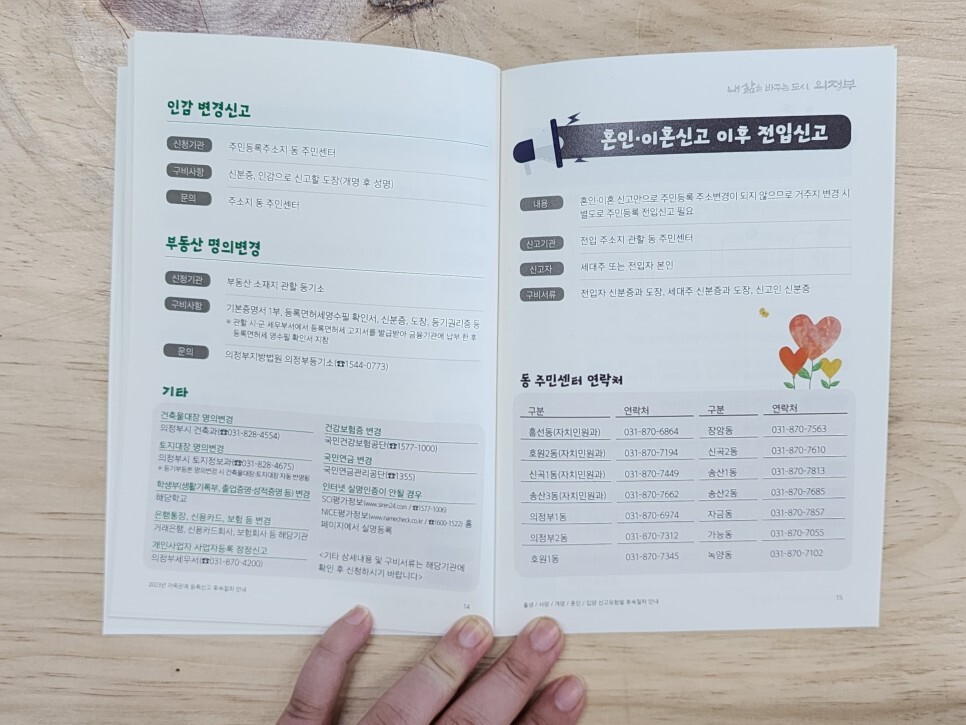 인감 변경신고
신청기관 주민등록주소지 동 주민센터
구비사항 신분증, 인감으로 신고할 도장(개명 후 성명)
문의 주소지 동 주민센터
부동산 명의변경
신청기관 부동산 소재지 관할 등기소
구비사항 기본증명서 1부, 등록면허세영수필 확인서, 신분증, 도장, 등기권리증 등
※ 관할 시·군 세무부서에서 등록면허세 고지서를 발급받아 금융기관에 납부 한 후
등록면허세 영수필 확인서 지참
문의 의정부지방법원 의정부등기소(☎1544-0773)
기타
건축물대장 명의변경
의정부시 건축과(☎031-828-4554)
토지대장 명의변경
의정부시 토지정보과(☎031-828-4675)
※ 등기부등본 명의변경 시 건축물대장·토지대장 자동 반영됨
학생부(생활기록부, 졸업증명·성적증명 등) 변경
해당학교
은행통장, 신용카드, 보험 등 변경
거래은행, 신용카드회사, 보험회사 등 해당기관
개인사업자 사업자등록 정정신고
의정부세무서(☎031-870-4200)
건강보험증 변경
국민건강보험공단(☎1577-1000)
국민연금 변경
국민연금관리공단(☎1355)
인터넷 실명인증이 안될 경우
SCI평가정보(www.siren24.com / ☎1577-1006)
NICE평가정보(www.namecheck.co.kr / ☎1600-1522) 홈
페이지에서 실명등록
<기타 상세내용 및 구비서류는 해당기관에
확인 후 신청하시기 바랍니다>
2023년 가족관계 등록신고 후속절차 안내
14
내 삶을 바꾸는 도시, 의정부
혼인·이혼신고 이후 전입신고
내용 혼인·이혼 신고만으로 주민등록 주소변경이 되지 않으므로 거주지 변경 시
별도로 주민등록 전입신고 필요
신고기관 전입 주소지 관할 동 주민센터
신고자 세대주 또는 전입자 본인
구비서류 전입자 신분증과 도장, 세대주 신분증과 도장, 신고인 신분증
동 주민센터 연락처
구분 연락처 구분 연락처
흥선동(자치민원과) 031-870-6864 장암동 031-870-7563
호원2동(자치민원과) 031-870-7194 신곡2동 031-870-7610
신곡1동(자치민원과) 031-870-7449 송산1동 031-870-7813
송산3동(자치민원과) 031-870-7662 송산2동 031-870-7685
의정부1동 031-870-6974 자금동 031-870-7857
의정부2동 031-870-7312 가능동 031-870-7055
호원1동 031-870-7345 녹양동 031-870-7102
출생 / 사망 / 개명 / 혼인 / 입양 신고유형별 후속절차 안내
15